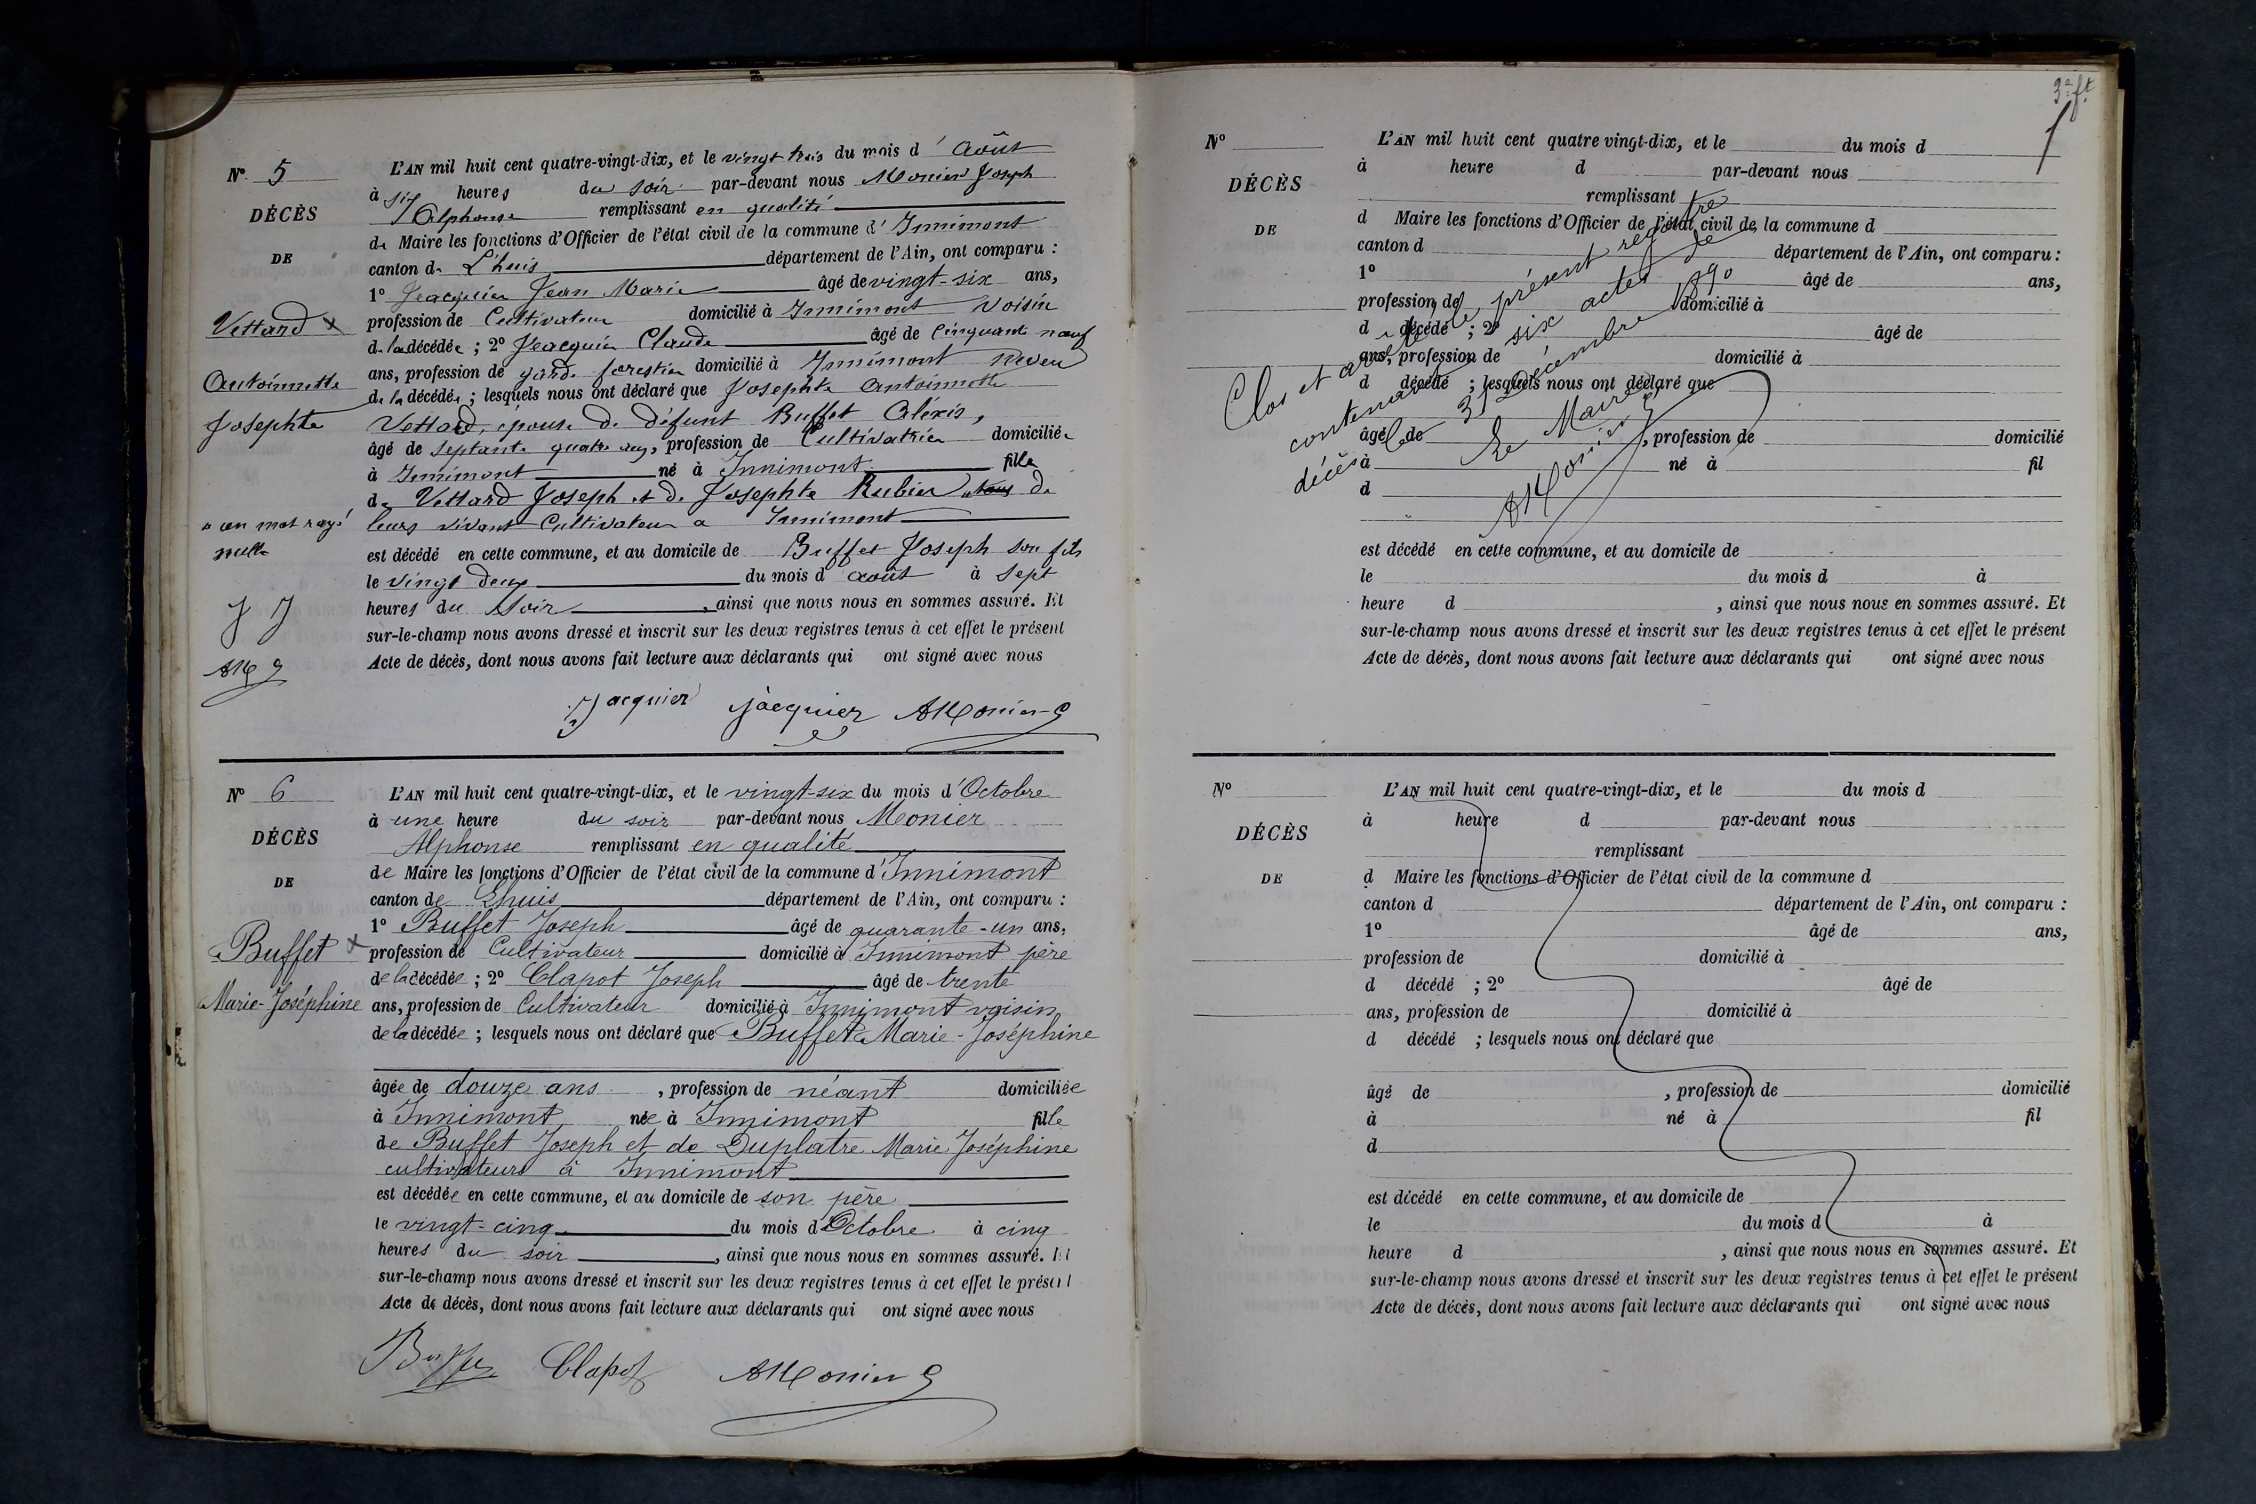 N° 5
DÉCÈS
DE
Vettard x
Antoinette
Josephte
" un mot rayé
nulle
J J
AM
L'AN mil huit cent quatre-vingt-dix, et le vingt trois du mois d'Août
à six heures du soir par-devant nous Monier Joseph
Alphonse remplissant en qualité
de Maire les fonctions d'Officier de l'état civil de la commune d'Innimont
canton de L'huis département de l'Ain, ont comparu :
1° Jeacquier Jean Marie âgé de vingt-six ans,
profession de Cultivateur domicilié à Innimont voisin
de la décédée ; 2° Jeacquier Claude âgé de cinquante neuf
ans, profession de garde forestier domicilié à Innimont neveu
de la décédée ; lesquels nous ont déclaré que Josephte Antoinette
Vettard, épouse de défunt Buffet Aléxis,
âgé de septante quatre ans, profession de Cultivatrice domiciliée
à Innimont né à Innimont fille
de Vettard Joseph et de Josephte Rubier de
leurs vivant Cultivateur a Innimont
est décédé en cette commune, et au domicile de Buffet Joseph son fils
le vingt deux du mois d'août à sept
heures du soir, ainsi que nous nous en sommes assuré. Et
sur-le-champ nous avons dressé et inscrit sur les deux registres tenus à cet effet le présent
Acte de décès, dont nous avons fait lecture aux déclarants qui ont signé avec nous
Jacquier jàcquier AMonier
N° 6
DÉCÈS
DE
Buffet x
Marie-Joséphine
L'AN mil huit cent quatre-vingt-dix, et le vingt-six du mois d'Octobre
à une heure du soir par-devant nous Monier
Alphonse remplissant en qualité
de Maire les fonctions d'Officier de l'état civil de la commune d'Innimont
canton de Lhuis département de l'Ain, ont comparu :
1° Buffet Joseph âgé de quarante-un ans,
profession de Cultivateur domicilié à Innimont père
de la décédée ; 2° Clapot Joseph âgé de trente
ans, profession de Cultivateur domicilié à Innimont voisin
de la décédée ; lesquels nous ont déclaré que Buffet Marie-Joséphine
âgée de douze ans, profession de néant domiciliée
à Innimont née à Innimont fille
de Buffet Joseph et de Duplatre Marie Joséphine
cultivateurs à Innimont
est décédée en cette commune, et au domicile de son père
le vingt-cinq du mois d'Octobre à cinq
heures du soir, ainsi que nous nous en sommes assuré. Et
sur-le-champ nous avons dressé et inscrit sur les deux registres tenus à cet effet le présent
Acte de décès, dont nous avons fait lecture aux déclarants qui ont signé avec nous
Buffet Clapot AMonier
3e ft
N°
DÉCÈS
DE
L'AN mil huit cent quatre vingt-dix, et le du mois d
à heure d par-devant nous
remplissant
d Maire les fonctions d'Officier de l'état civil de la commune d
canton d département de l'Ain, ont comparu :
1° âgé de ans,
profession de domicilié à
d décédé ; 2° âgé de
ans, profession de domicilié à
d décédé ; lesquels nous ont déclaré que
âgé de , profession de domicilié
à né à fil
d
est décédé en cette commune, et au domicile de
le du mois d à
heure d , ainsi que nous nous en sommes assuré. Et
sur-le-champ nous avons dressé et inscrit sur les deux registres tenus à cet effet le présent
Acte de décès, dont nous avons fait lecture aux déclarants qui ont signé avec nous
Clos et arrêté le présent registre
contenant six actes de
décès le 31 Décembre 1890
Le Maire
AMonier
N°
DÉCÈS
DE
L'AN mil huit cent quatre-vingt-dix, et le du mois d
à heure d par-devant nous
remplissant
d Maire les fonctions d'Officier de l'état civil de la commune d
canton d département de l'Ain, ont comparu :
1° âgé de ans,
profession de domicilié à
d décédé ; 2° âgé de
ans, profession de domicilié à
d décédé ; lesquels nous ont déclaré que
âgé de , profession de domicilié
à né à fil
d
est décédé en cette commune, et au domicile de
le du mois d à
heure d , ainsi que nous nous en sommes assuré. Et
sur-le-champ nous avons dressé et inscrit sur les deux registres tenus à cet effet le présent
Acte de décès, dont nous avons fait lecture aux déclarants qui ont signé avec nous